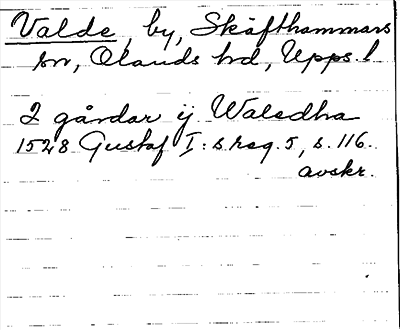 Valde, by, Skäfthammars
sn, Olands hd, Upps. l
2 gårdar ij Walsdha
1528 Gustaf I:s reg. 5, s. 116.
avskr.